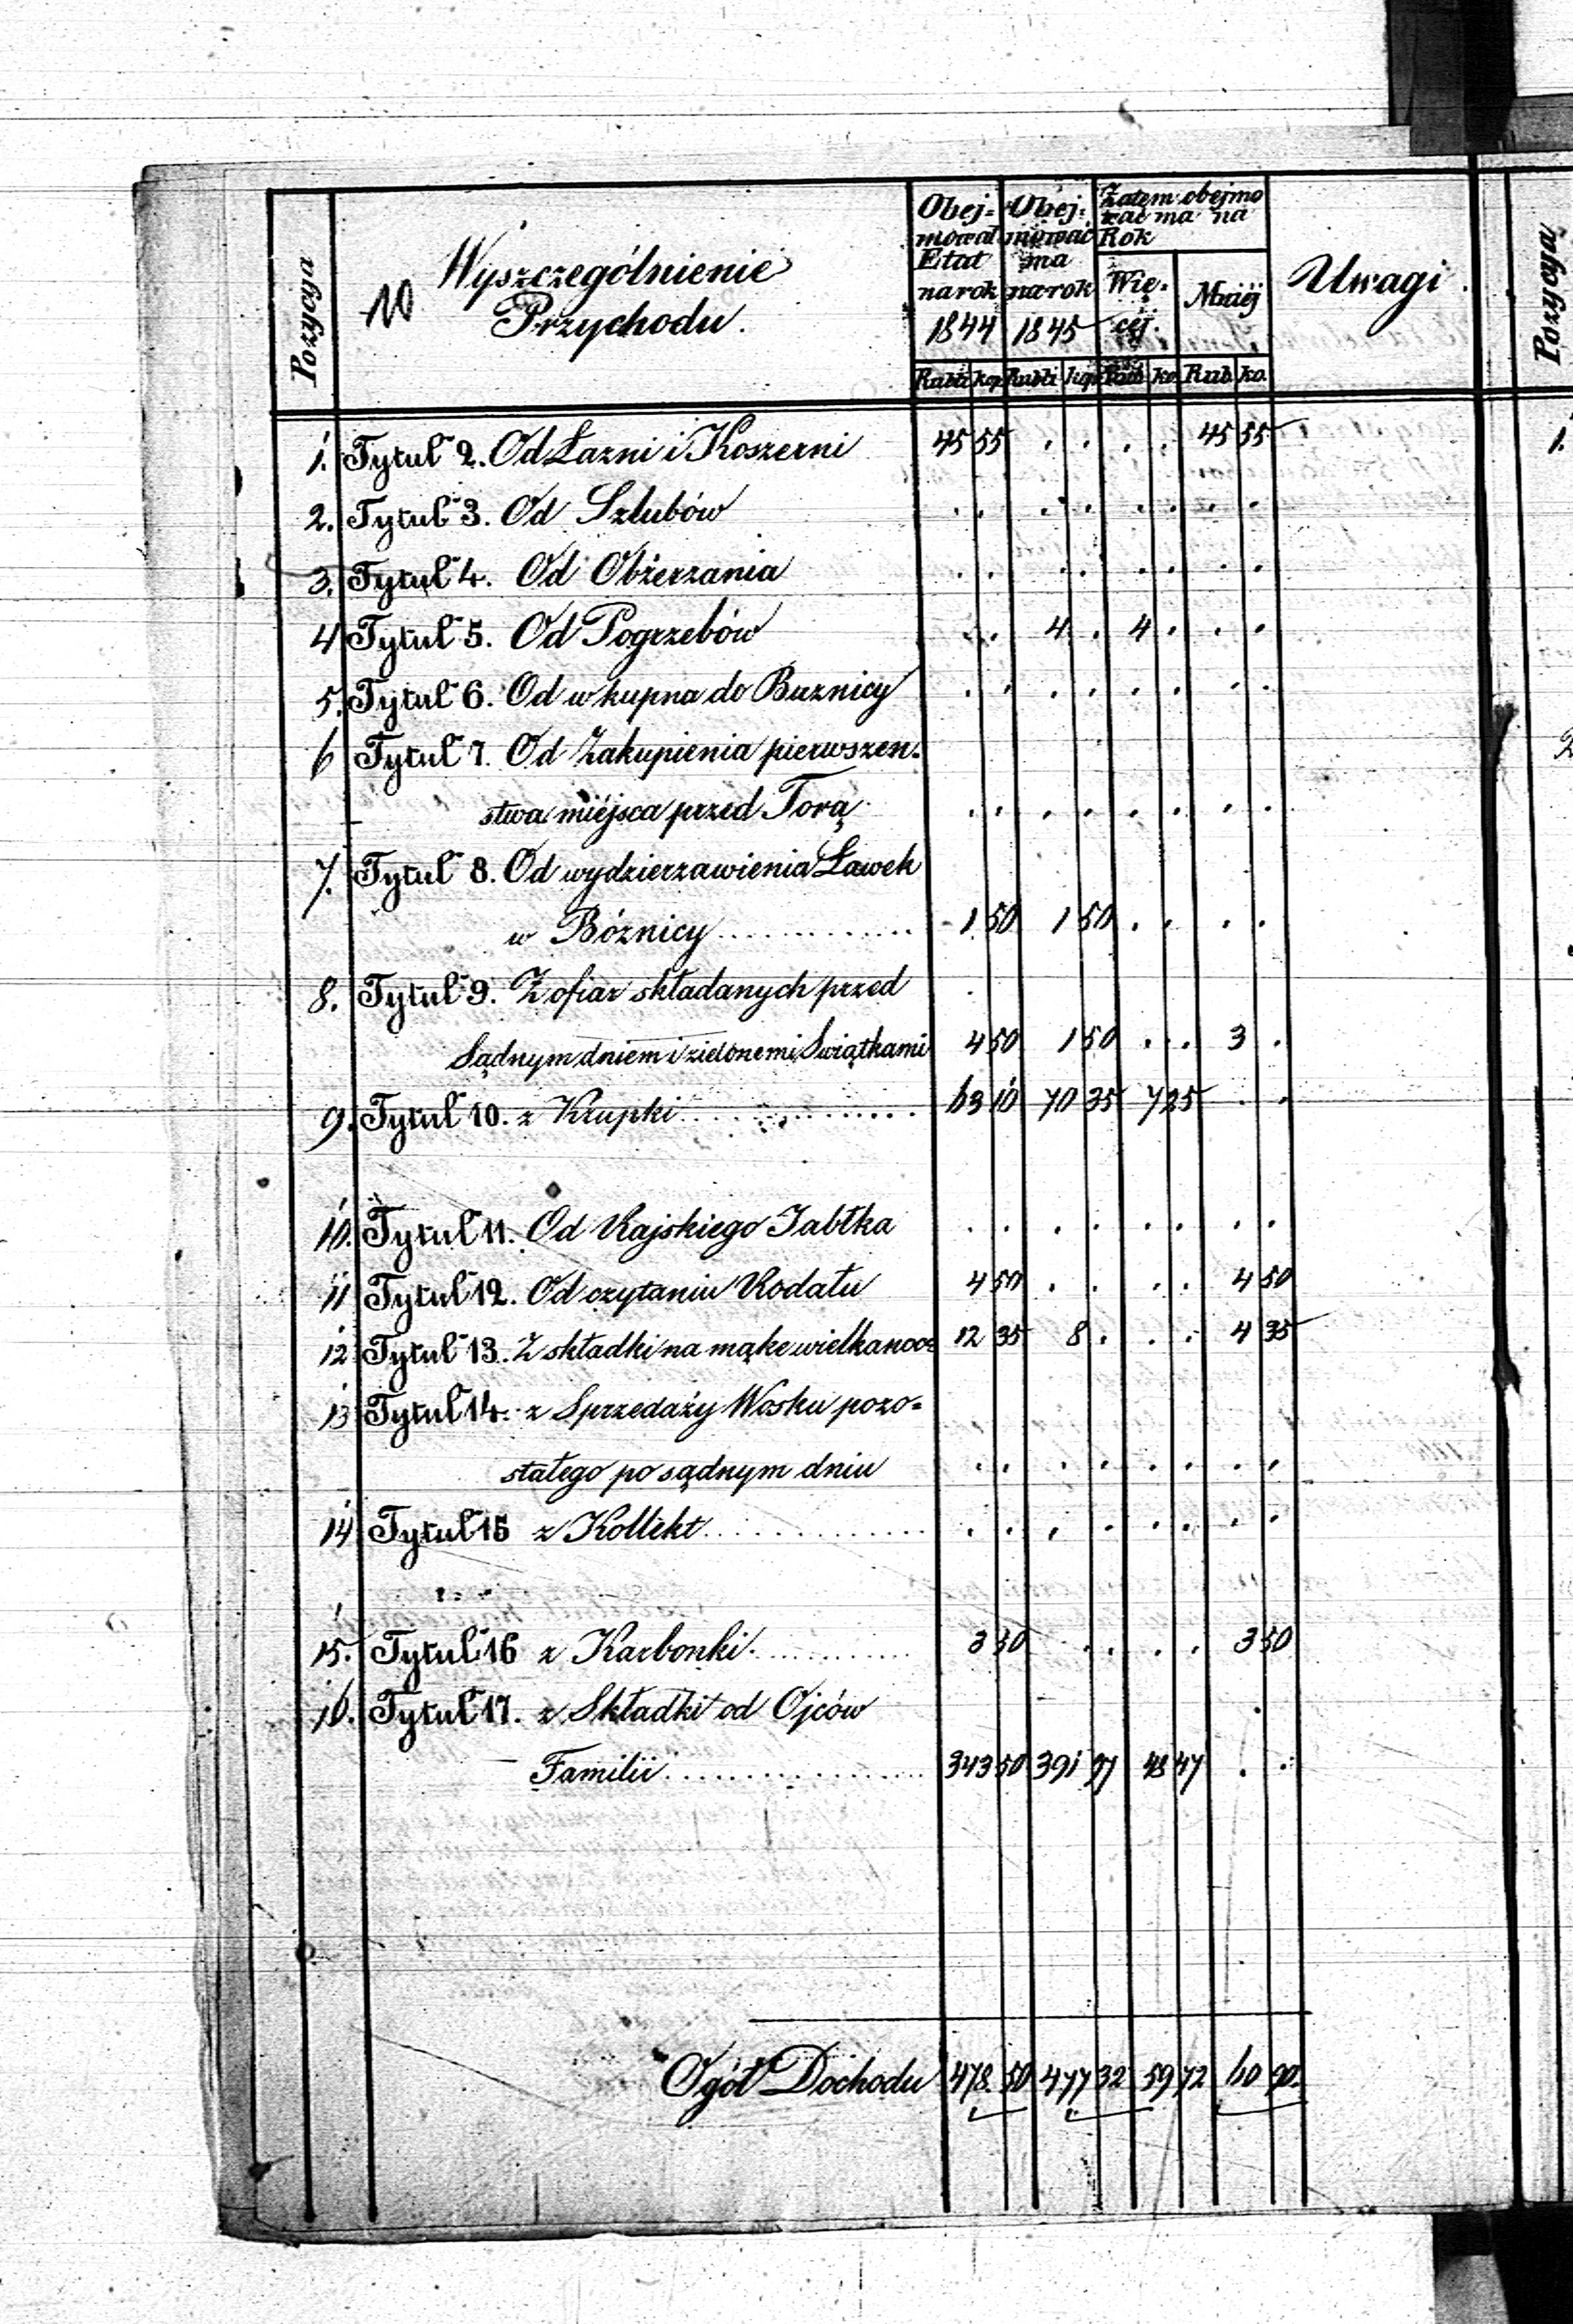 Pozycya
10
Wyszczególnienie
Przychodu.
Obej=
mował
Etat
na rok
1844
Obej=
mować
ma
na rok
1845
Zatem obejmo
wać ma na
Rok
Wię-
céj.
Mniéj
Uwagi
Pozycya
Rubli kop Rubli kop Rub ko. Rub. ko.
1. Tytuł 2. Od Łazni i Koszerni 45 55 . . . . 45 55
1.
2. Tytuł 3. Od Szlubów . . . . . . . .
3. Tytuł 4. Od Obżerzania . . . . . . . .
4 Tytuł 5. Od Pogrzebów . . 4 . 4 . . .
5. Tytuł 6. Od wkupna do Buznicy . . . . . . . .
6 Tytuł 7. Od Zakupienia pierwszen=
2
stwa miéjsca przed Torą . . . . . . . .
7. Tytuł 8. Od wydzierzawienia Ławek
w Bóżnicy 1 50 1 50 . . . .
8. Tytuł 9. Z ofiar składanych przed
Sądnym dniem i zielonemi Swiątkami 4 50 1 50 . . 3 .
9. Tytuł 10. z Krupki 63 10 70 35 7 25 . .
10. Tytuł 11. Od Rajskiego Jabłka . . . . . . . .
11 Tytuł 12. Od czytaniu Rodału 4 50 . . . . 4 50
12 Tytuł 13. Z składki na mąke wielkanoc 12 35 8 . . . 4 35
13 Tytuł 14. z Sprzedaży Wosku pozo=
stałego po sądnym dniu . . . . . . . .
14 Tytuł 15 z Kollekt . . . . . . . .
15. Tytuł 16 z Karbonki 3 50 . . . . 3 50
16. Tytuł 17. z Składki od Ojców
Familii 343 50 391 97 48 47 . .
Ogół Dochodu 478. 50 477 32 59 72 60 90.